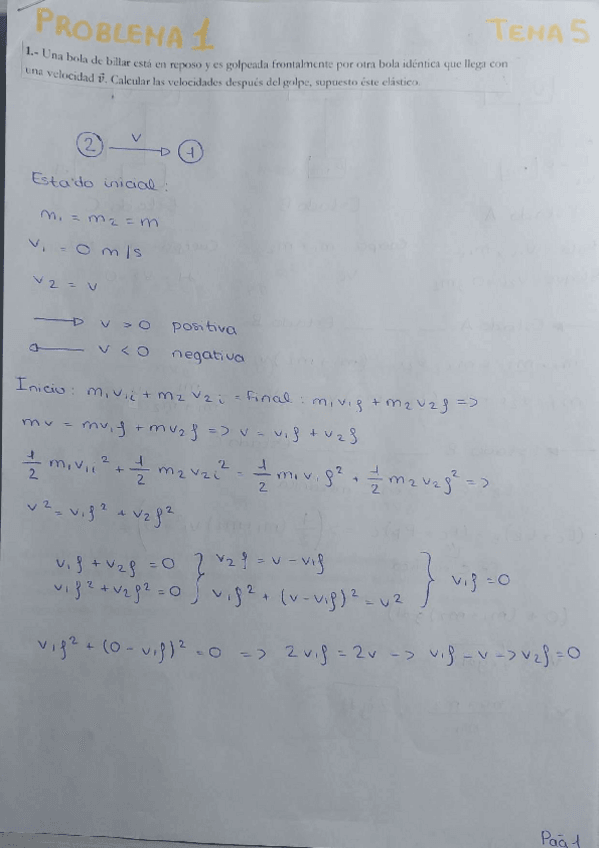 PROBLEMA 1 TEMA 5
1.- Una bola de billar está en reposo y es golpeada frontalmente por otra bola idéntica que llega con
una velocidad v⃗. Calcular las velocidades después del golpe, supuesto éste elástico.
2 v 1
Estado inicial:
m₁ = m₂ = m
v₁ = 0 m/s
v₂ = v
v > 0 positiva
v < 0 negativa
Inicio: m₁v₁i + m₂v₂i = Final: m₁v₁f + m₂v₂f =>
mv = mv₁f + mv₂f => v = v₁f + v₂f
1/2 m₁v₁i² + 1/2 m₂v₂i² = 1/2 m₁v₁f² + 1/2 m₂v₂f² =>
v² = v₁f² + v₂f²
v₁f + v₂f = 0 } v₂f = v - v₁f
v₁f² + v₂f² = 0 } v₁f² + (v - v₁f)² = v² } v₁f = 0
v₁f² + (0 - v₁f)² = 0 => 2v₁f = 2v -> v₁f = v -> v₂f = 0
Pág 1